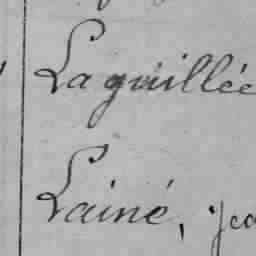 Laguillée
Lainé,